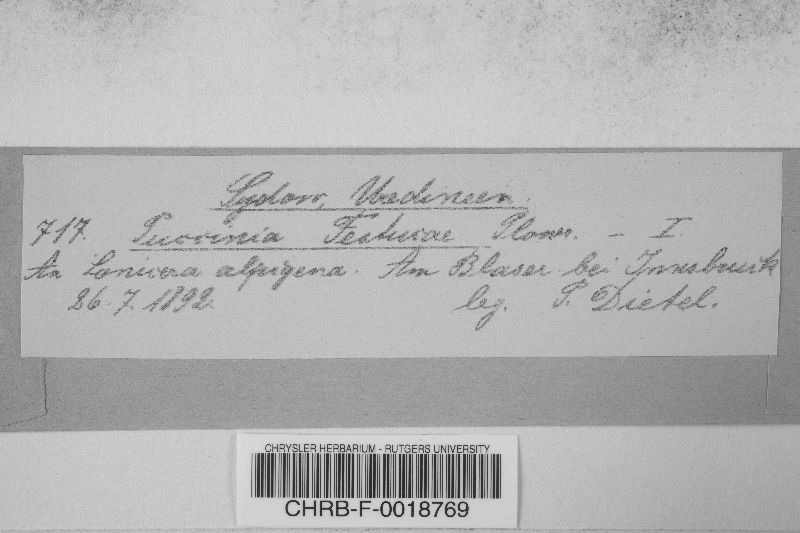 Sydow, Uredineen.
717. Puccinia Festucae Plowr. - I.
An Lonicera alpigena. Am Blaser bei Innsbruck
26. 7. 1892. leg. P. Dietel.
CHRYSLER HERBARIUM - RUTGERS UNIVERSITY
CHRB-F-0018769